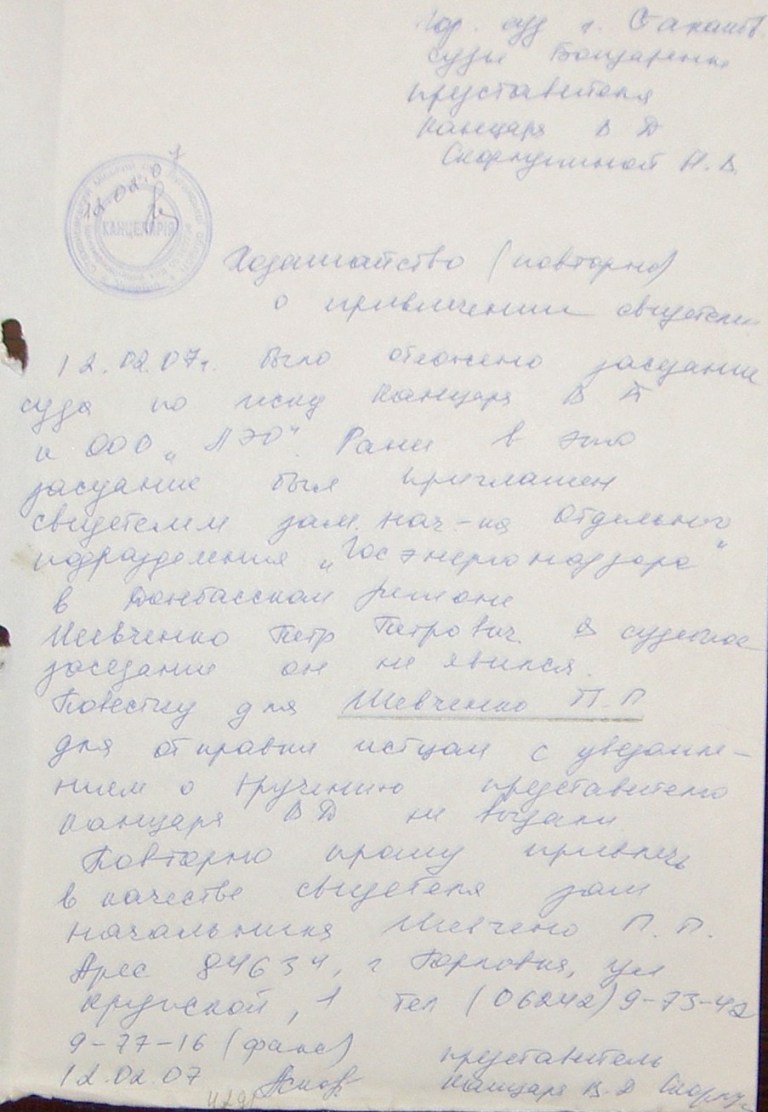 Гор. суд г. Стаханов
судье
представителя
Канцаря В Д
Скорпутиной Н.В.
12.02.07
КАНЦЕЛЯРІЯ
Ходатайство (повторно)
о привлечении свидетеля
12.02.07г. было отложено заседание
суда по иску Канцаря В Д
к ООО „ЛЭО“ Ранее в это
заседание был приглашен
свидетелем зам. нач-ка отдельного
подразделения „Госэнергонадзора“
в Донбасском регионе
Шевченко Петр Петрович. В судебное
заседание он не явился.
Повестку для Шевченко П.П
для отправки истцом с уведомле-
нием о вручению представителю
Канцаря ВД не выдали
Повторно прошу привлечь
в качестве свидетеля зам
начальника Шевчено П.П.
Адрес 84634, г Горловка, ул
Крупской, 1 тел (06242) 9-73-42
9-77-16 (факс) представитель
12.02.07 Канцаря В.Д